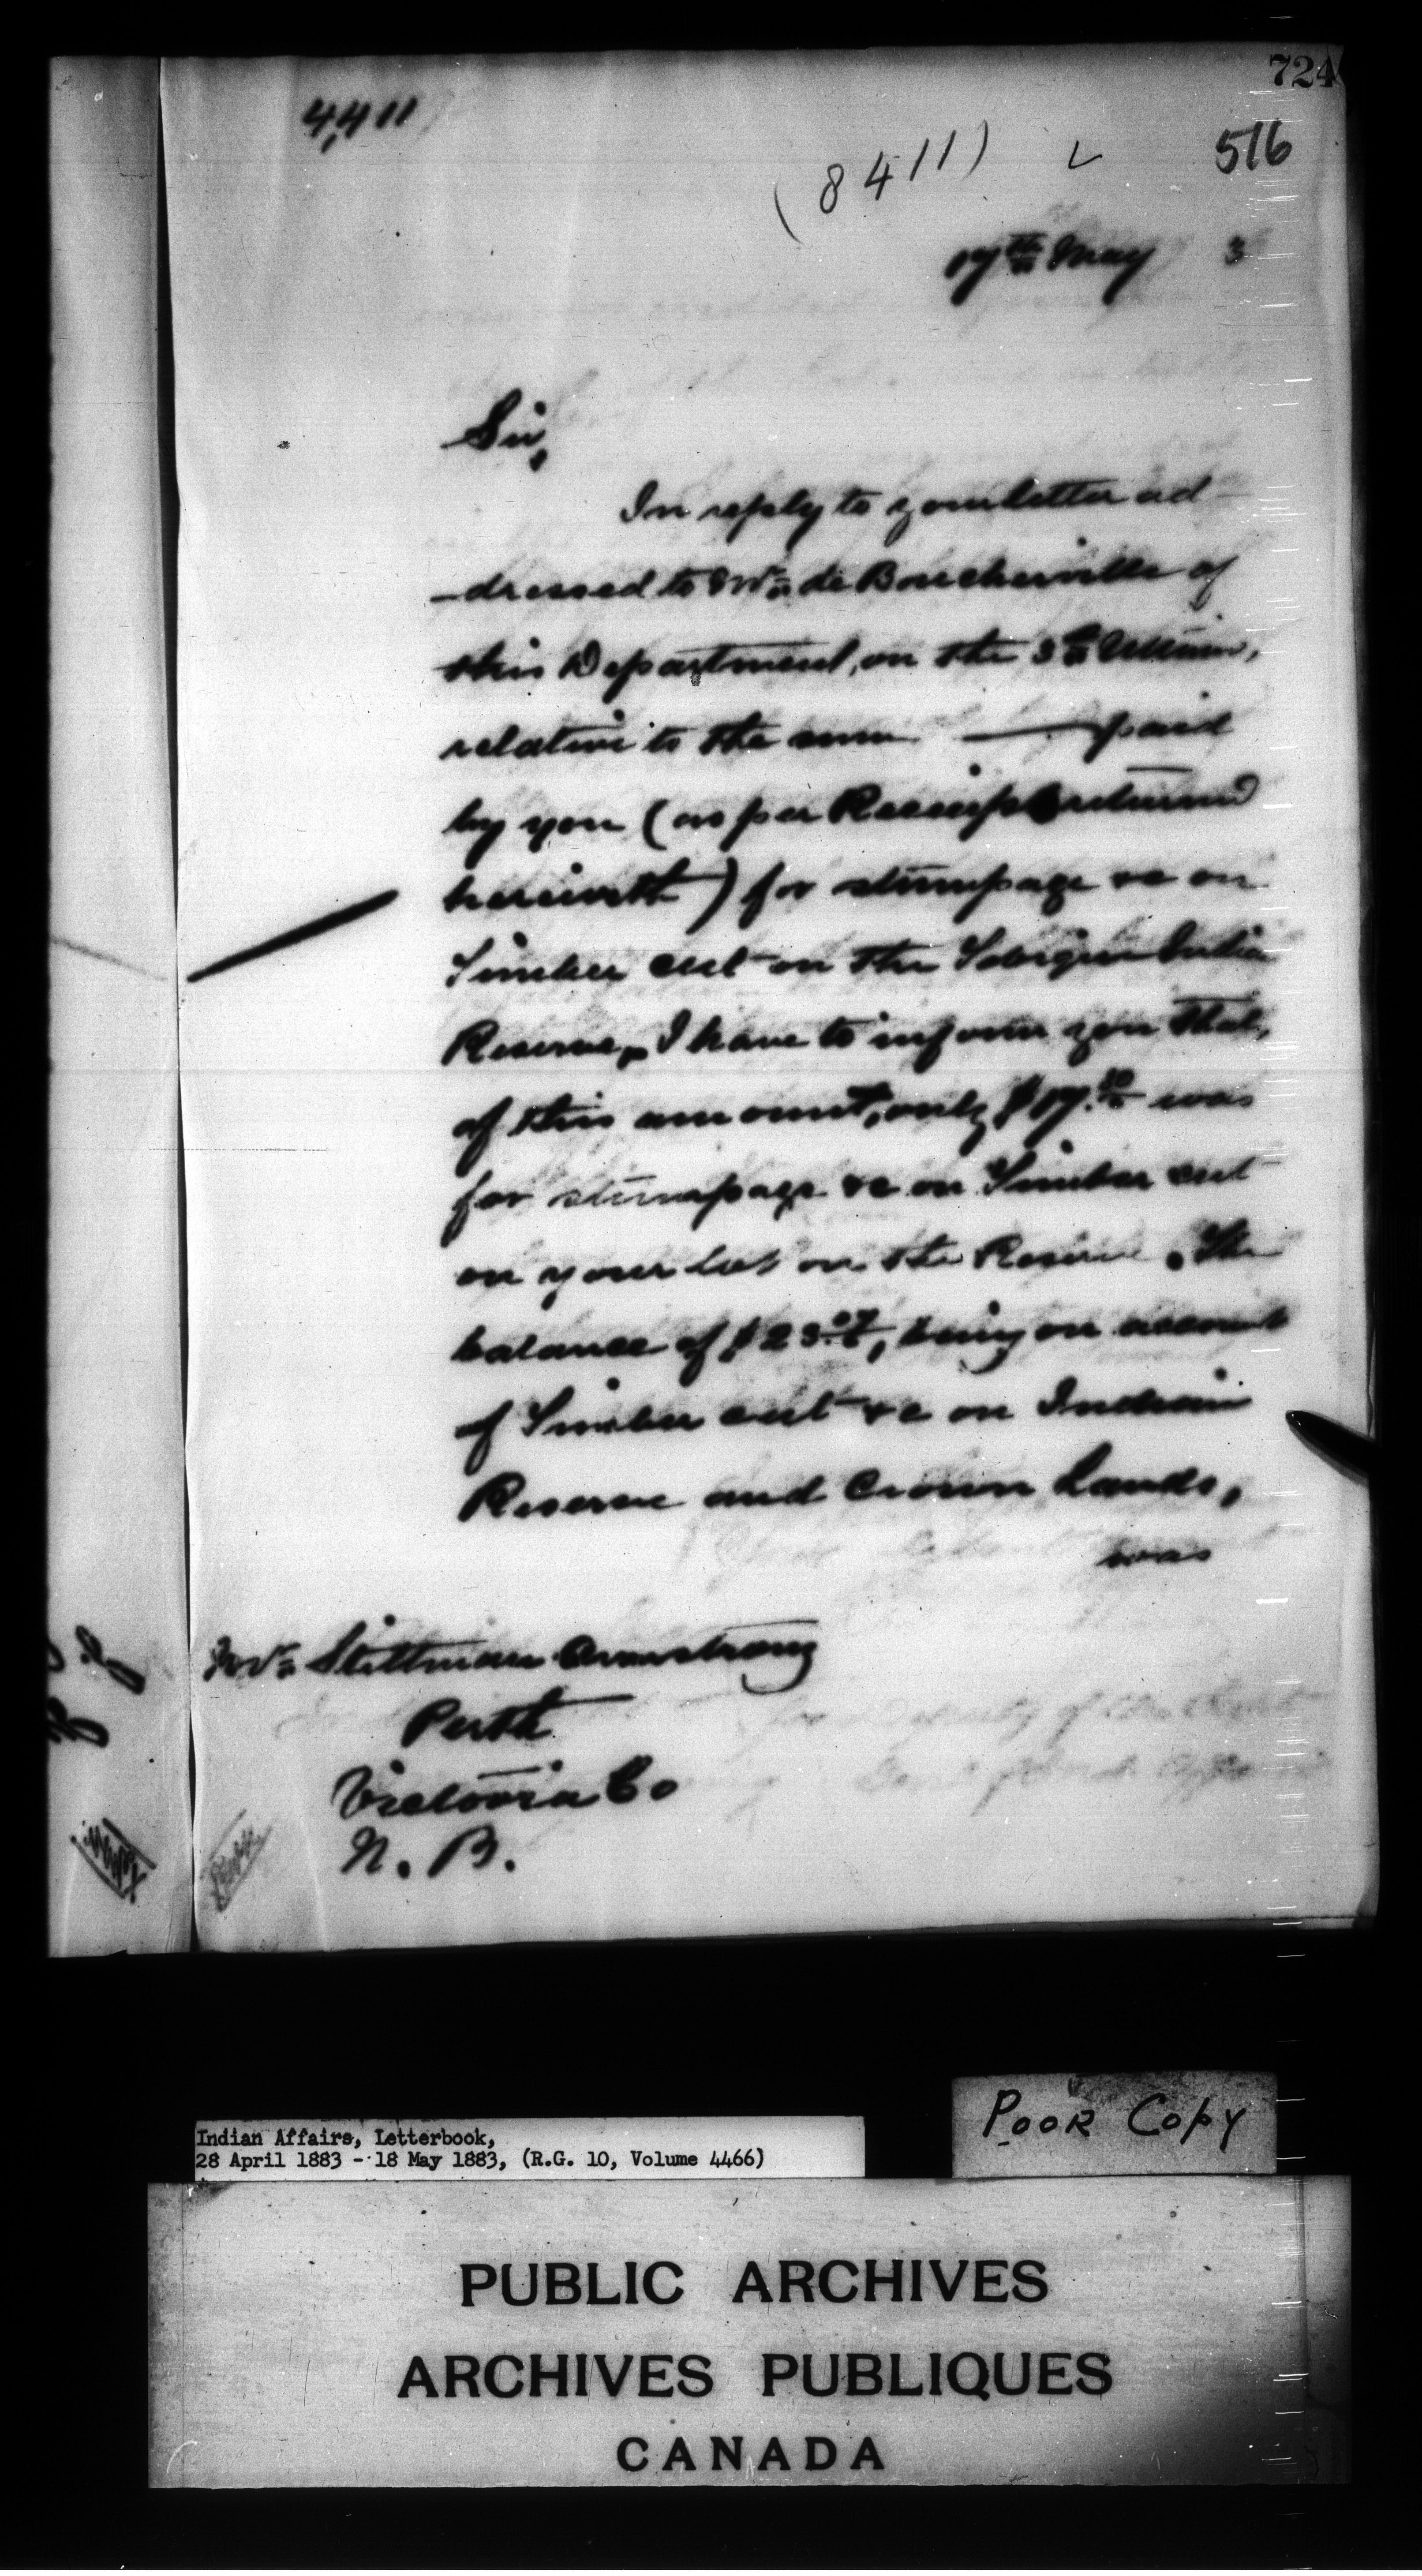 724
4,411
(8411)
516
17th May 3
Sir,
In reply to your letter ad
-dressed to Mr. de Boucherville of
this Department, on the 3rd Ultimo,
relative to the sum — paid
by you (as per Receipt returned
herewith) for stumpage &c on
Timber cut on the Tobique Indian
Reserve, I have to inform you that,
of this amount, only $17.10 was
for stumpage &c on Timber cut
on your lot on the Reserve. The
balance of $23.07, being on account
of Timber cut &c on Indian
Reserve and Crown Lands,
was
Mr. Stillman Armstrong
Perth
Victoria Co
N. B.
Indian Affairs, Letterbook,
28 April 1883 - 18 May 1883, (R.G. 10, Volume 4466)
POOR COPY
PUBLIC ARCHIVES
ARCHIVES PUBLIQUES
CANADA